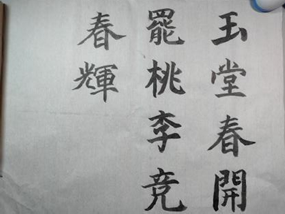 玉堂春開
罷桃李竞
春輝